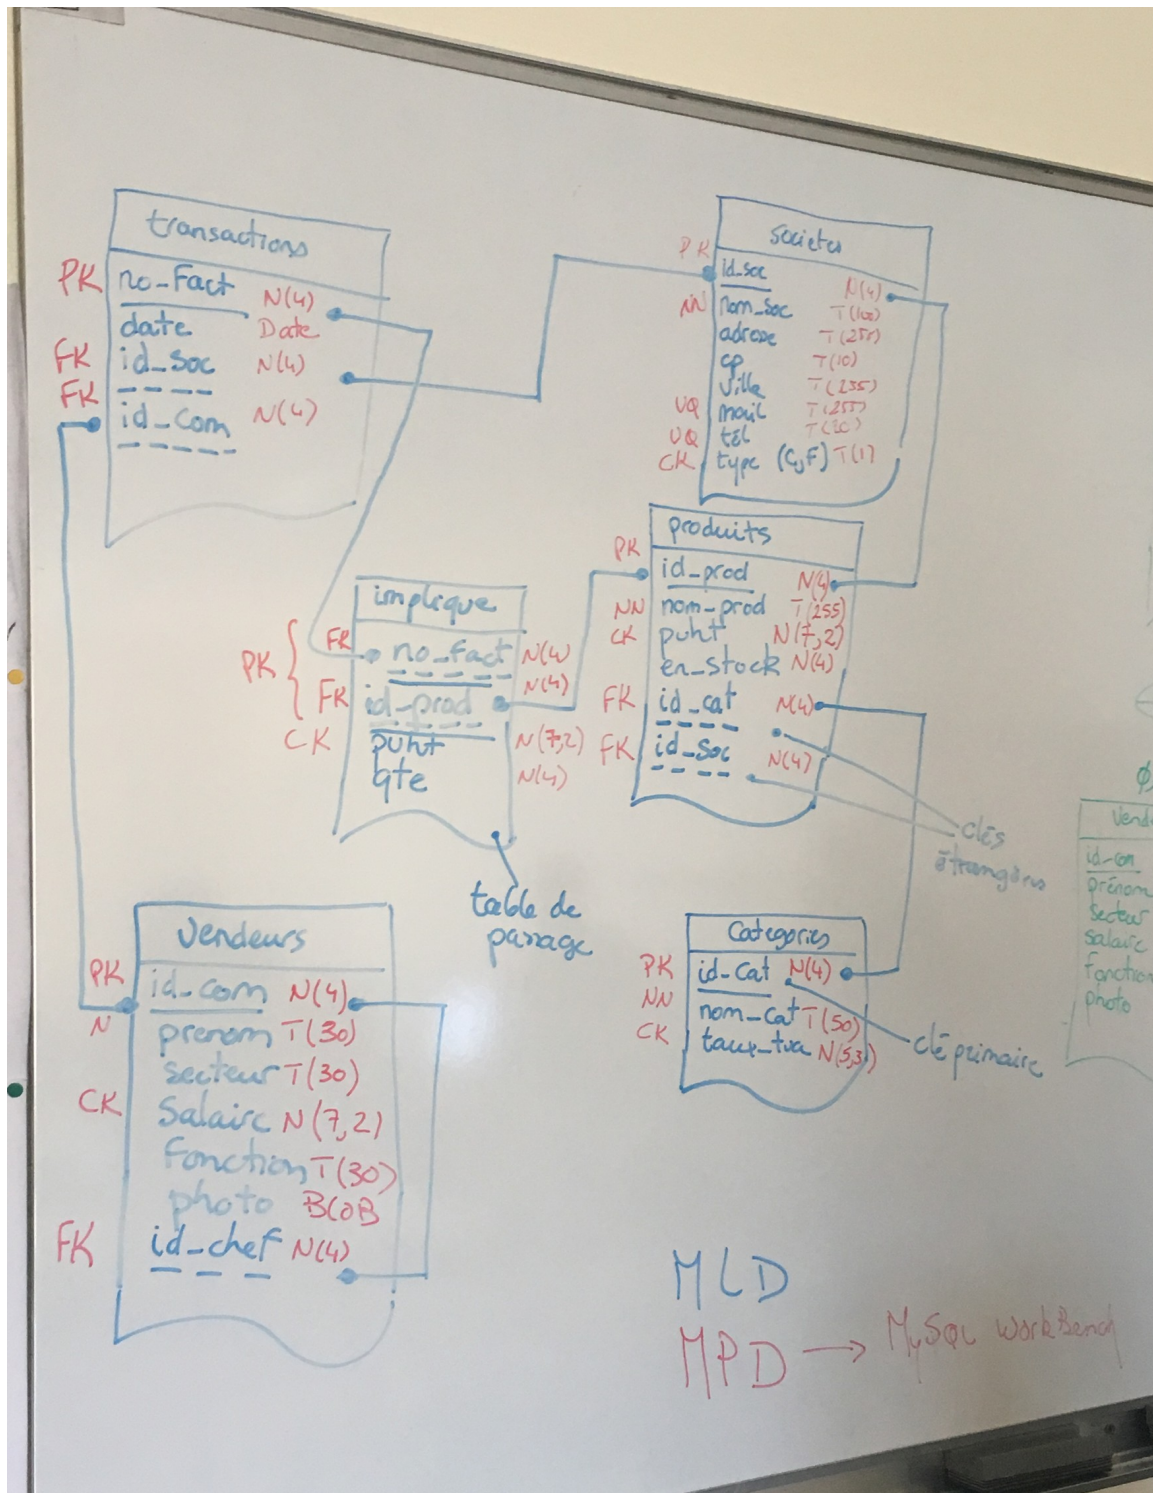 transactions
PK no-Fact N(4)
date Date
FK id_soc N(4)
FK id_com N(4)
societes
PK id_soc N(4)
NN nom_soc T(100)
adresse T(255)
cp T(10)
ville T(255)
UQ mail T(255)
UQ tel T(20)
CK type (C,F) T(1)
produits
PK id_prod N(4)
NN nom-prod T(255)
CK puht N(7,2)
en_stock N(4)
FK id_cat N(4)
FK id_soc N(4)
clés
étrangères
implique
PK { FK no_fact N(4)
FK id-prod N(4)
CK puht N(7,2)
qte N(4)
table de
passage
Vendeurs
PK id_com N(4)
N prenom T(30)
secteur T(30)
CK Salaire N(7,2)
Fonction T(30)
photo BLOB
FK id_chef N(4)
Categories
PK id_cat N(4)
NN nom_cat T(50)
CK taux_tva N(5,3)
clé primaire
Vend
id-com
prénom
secteur
salaire
fonction
photo
MLD
MPD → MySQL WorkBench